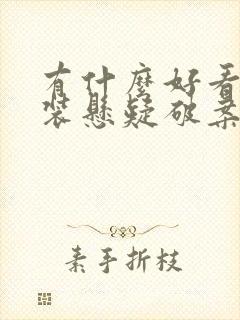 有什麼好看
装懸疑破案
素手折枝